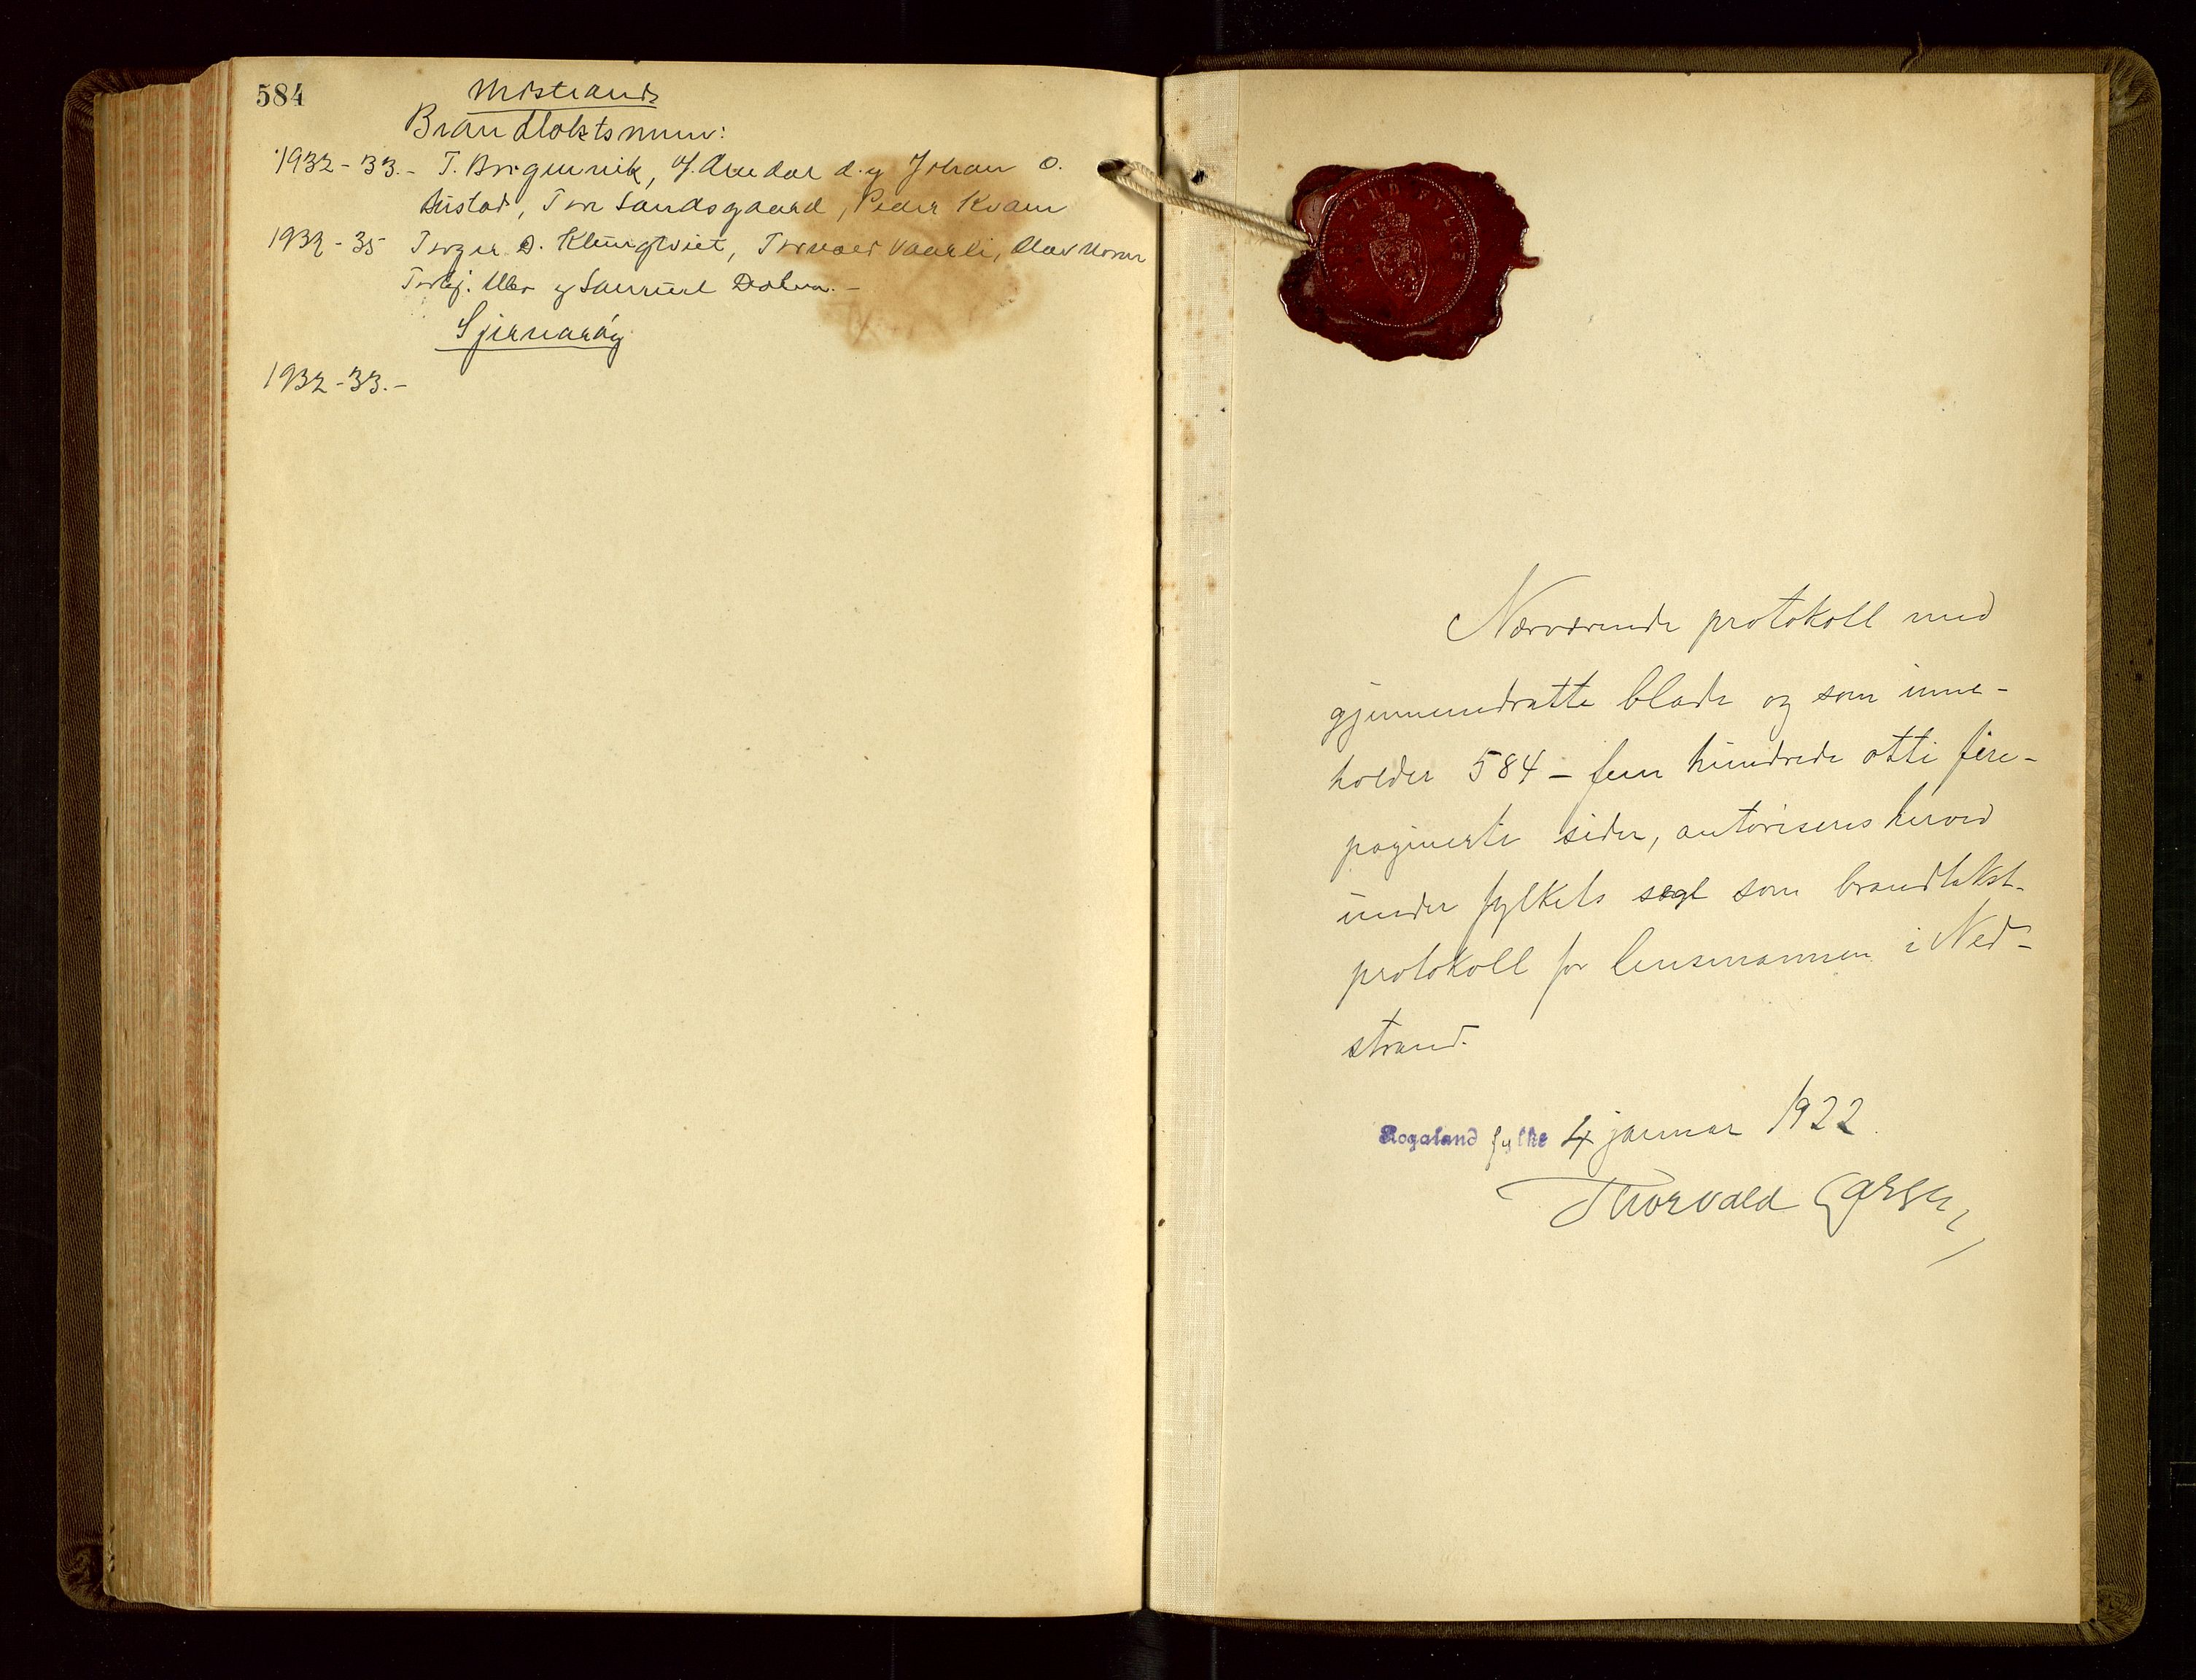 584
Nedstrand
Brandtakstmenn:
1932-33.- T. Borgenvik, J. Aredal d.y Johan O.
Austad, Tore Sandsgaard, Peder Kvam
1932-35 Torger D. Klungtveit, Torvald Vaarli, Olav
Torkj. og Samuel Dolva. -
Sjernarøy
1932-33.-
Nærværende protokoll med
gjennemdratte blade og som inne-
holder 584 - fem hundrede otti fire -
paginerte sider, autoriseres herved
under fylkets segl som brandtakst-
protokoll for lensmannen i Ned-
strand.
Rogaland fylke 4 januar 1922.
Thorvald Larsen